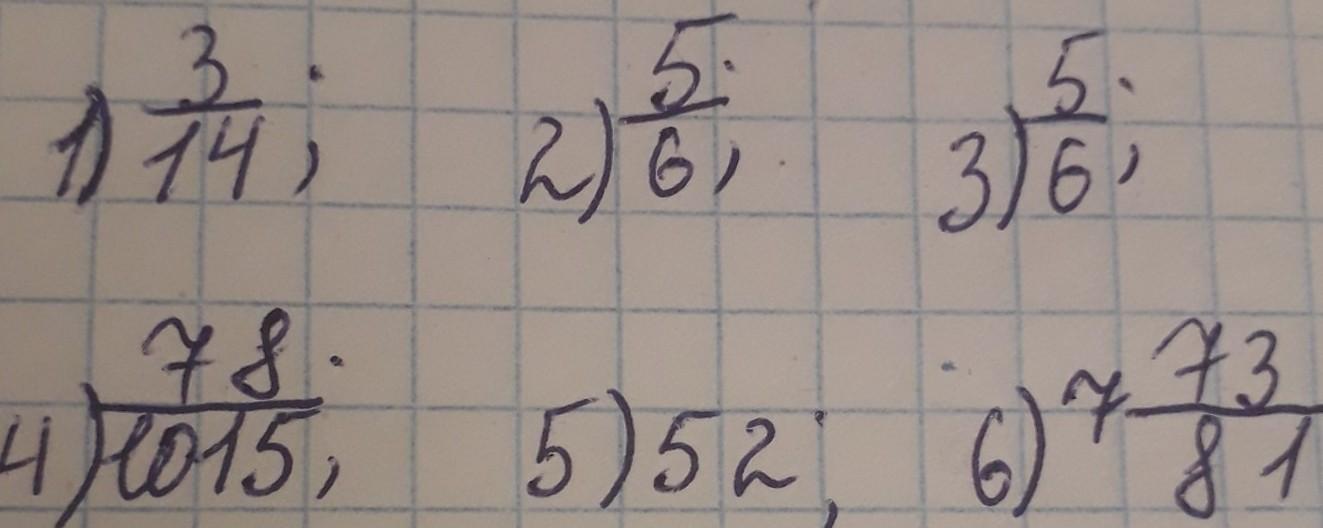 1) 3/14; 2) 5/6; 3) 5/6;
4) 78/1015; 5) 52; 6) 7 73/81